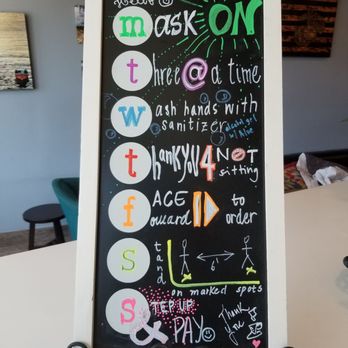 mask ON
three @ a time
wash hands with
sanitizer alcohol gel
w/ Aloe
thank you 4 NOT
sitting
fACE
foward to
order
stand
6'
on marked spots
STEP UP
& PAY
Thank